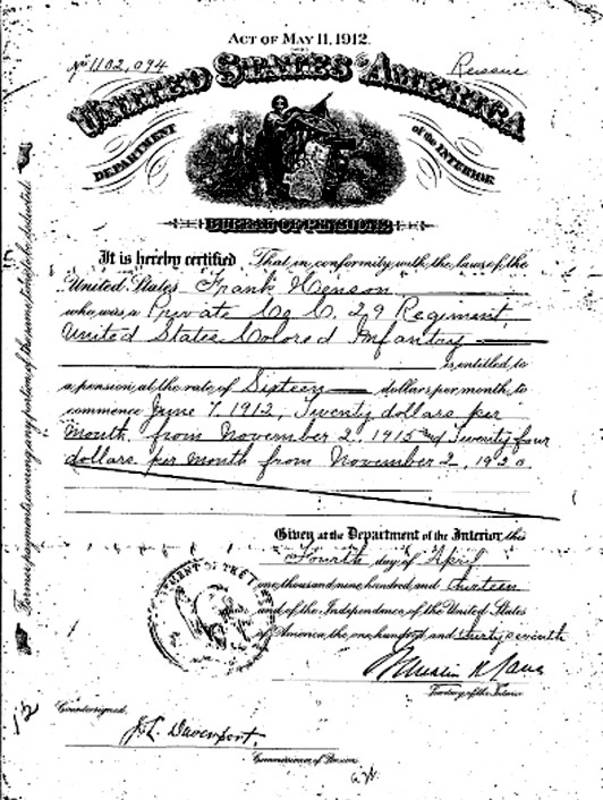 ACT OF MAY 11, 1912.
No 1102,094
Reissue
UNITED STATES OF AMERICA
DEPARTMENT of the INTERIOR
BUREAU OF PENSIONS
It is hereby certified That in conformity with the laws of the
United States Frank Henson
who was a Private Co C, 29 Regiment,
United States Colored Infantry
is entitled to
a pension at the rate of Sixteen dollars per month to
commence June 7, 1912, Twenty dollars per
month from November 2, 1915 and Twenty four
dollars per month from November 2, 1920.
Given at the Department of the Interior this
Fourth day of April
one thousand nine hundred and thirteen
and of the Independence of the United States
of America the one hundred and thirty seventh
Franklin K Lane
Secretary of the Interior
Countersigned,
J. L. Davenport,
Commissioner of Pensions
Former payments covering any portion of the same time to be deducted.
12